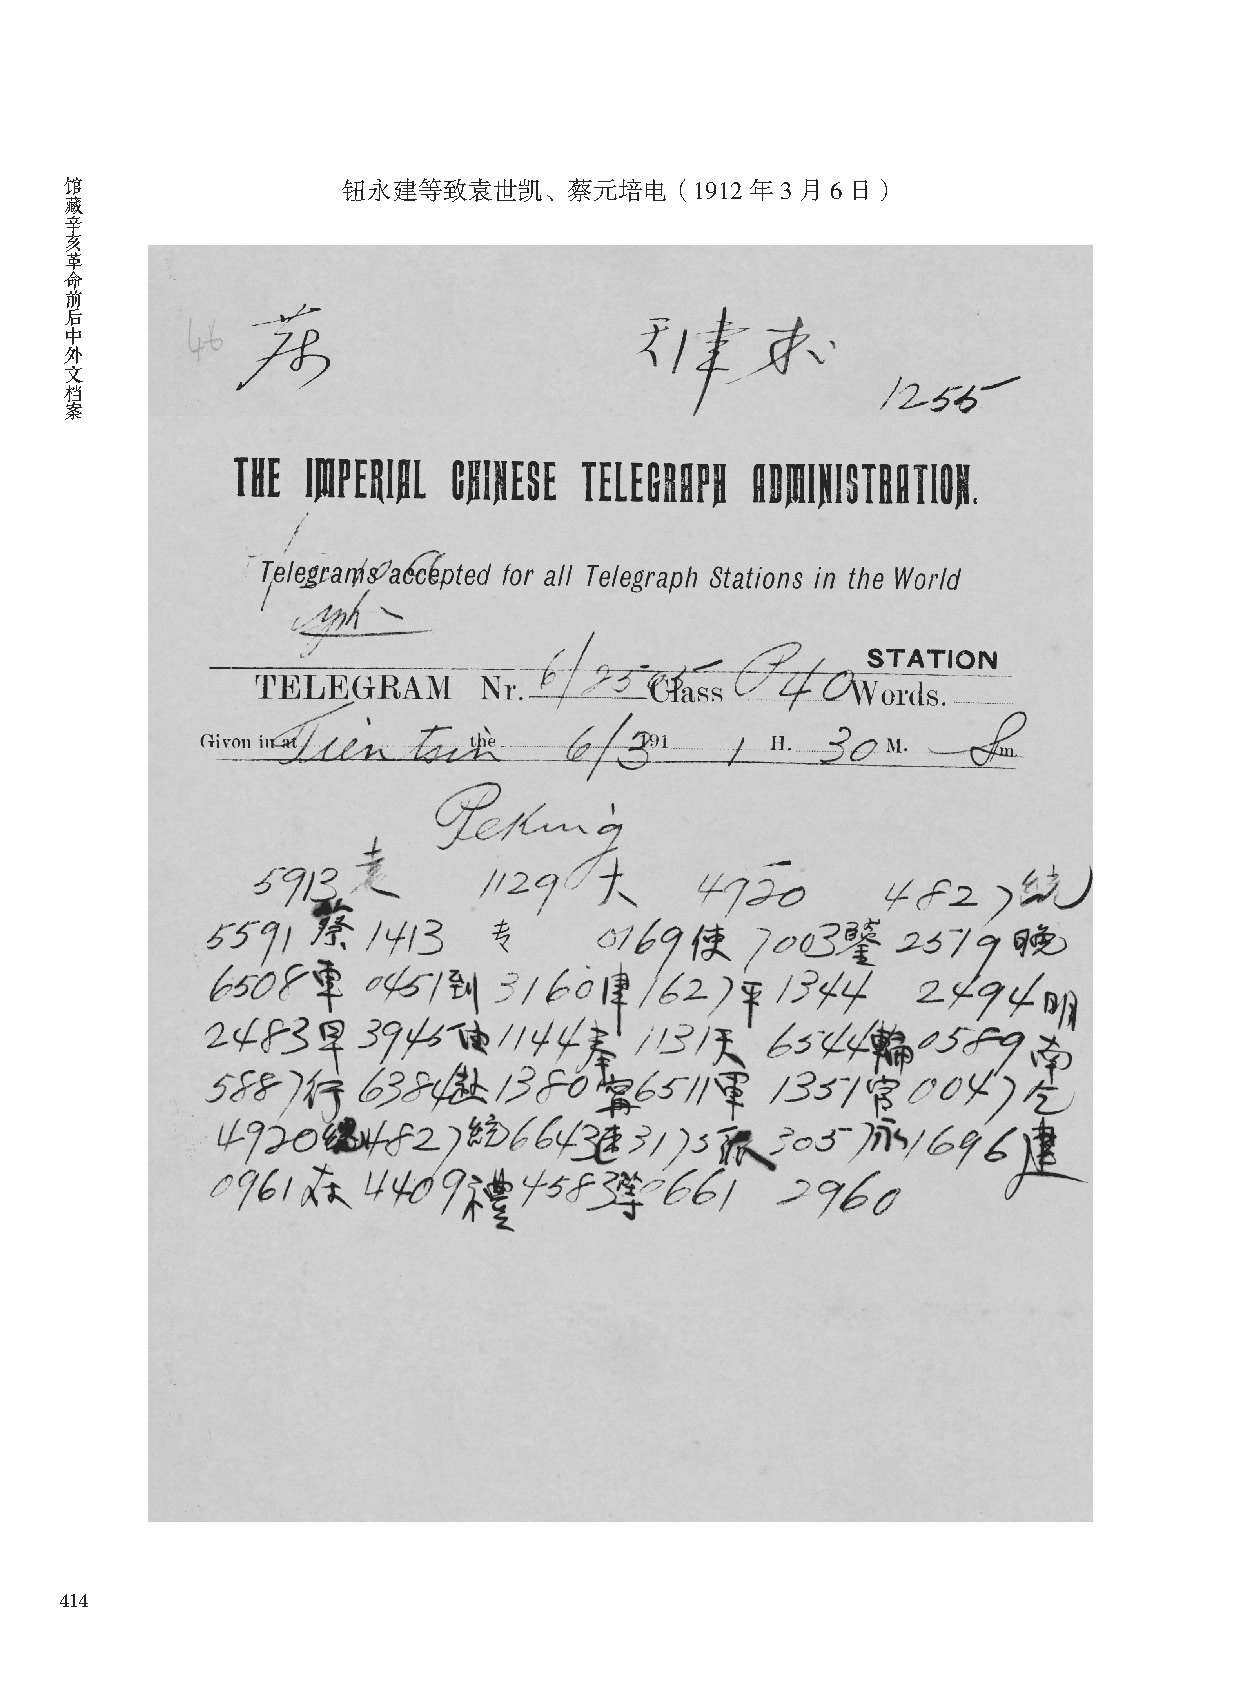 馆藏辛亥革命前后中外文档案
钮永建等致袁世凯、蔡元培电（1912年3月6日）
46
天津
1255
THE IMPERIAL CHINESE TELEGRAPH ADMINISTRATION.
Telegrams accepted for all Telegraph Stations in the World
STATION
TELEGRAM Nr. 6/2505 Class P 40 Words.
Given in at Tientsin the 6/3 191 1 H. 30 M. m
Peking
5913 袁 1129 大 4920 4827 統
5591 蔡 1413 专 0169 使 7003 鑒 2519 晚
6508 軍 0451 到 3160 津 1627 平 1344 2494 明
2483 早 3945 由 1144 奉 1131 天 6544 輪 0589 南
5887 行 6384 赴 1380 寗 6511 軍 1351 官 0047 乞
4920 總 4827 統 6643 速 3175 派 3057 永 1696 建
0961 4409 禮 4583 等 0661 2960
414